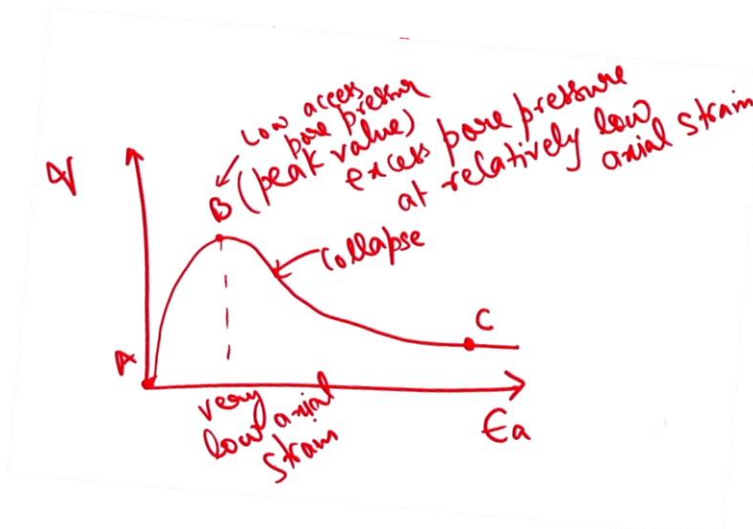 Low access
pore pressur
(peak value)
excess pore pressure
at relatively low
axial strain
q
B
collapse
C
A
very
low axial
strain
Ea